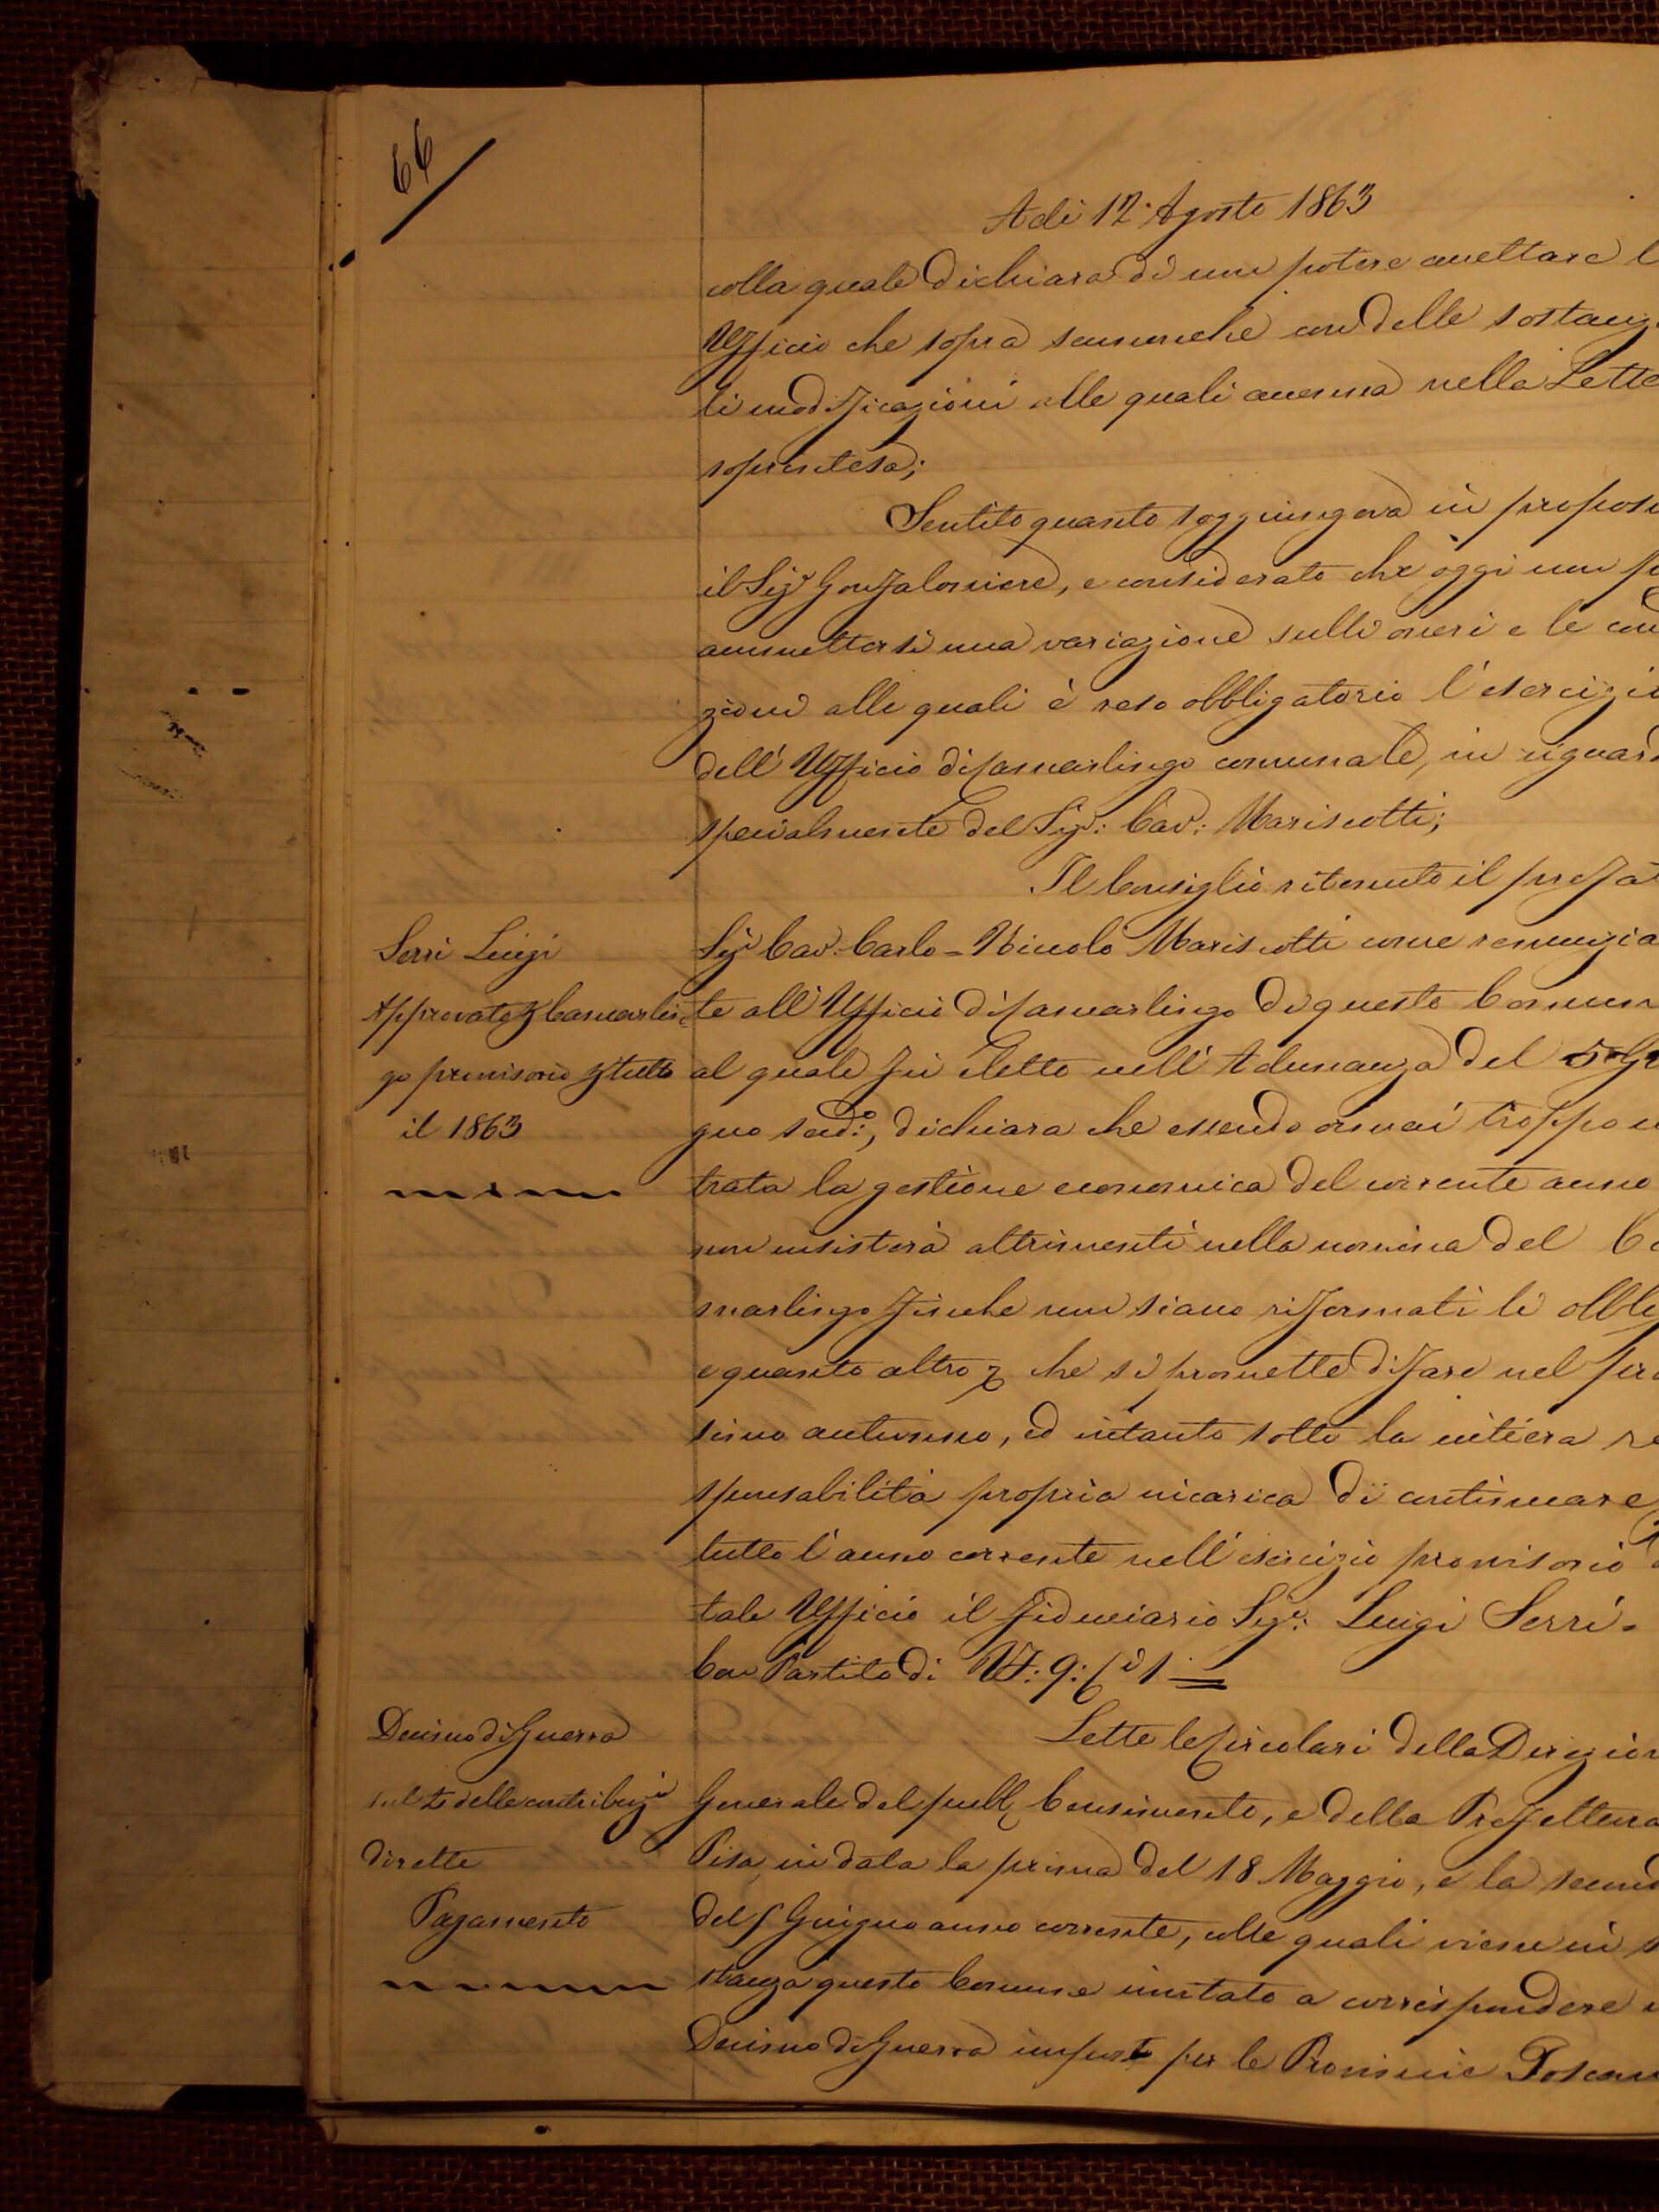 66
Adi 12 Agosto 1863
colla quale dichiara di non potere accettare l
Ufficio che sopra sennonchè con delle sostanz
li modificazioni alle quali accenna nella Lette
sopraintesa;
Sentito quanto soggiungeva in proposi
il Sigr Gonfaloniere, e considerato che oggi non p
ammettersi una variazione sulli oneri e le con
zioni alle quali è reso obbligatorio l'esercizi
dell'Ufficio di Camarlingo comunale, in riguard
specialmente del Sigr: Cav: Mariscotti;
Il Consiglio ritenuto il prefa
Serri Luigi
Approvato p Camarlin
go provvisorio p tutto
il 1863
Sigr Cav. Carlo=Niccolò Mariscotti come renunzia
te all'Ufficio di Camarlingo di questo Comun
al quale fù eletto nell'Adunanza del 5 G
gno sadº:, dichiara che essendo ormai troppo
trata la gestione economica del corrente anno
non insisterà altrimenti nella nomina del C
marlingo finche non siano riformati li obbli
e quanto altro p che si promette di fare nel pr
simo autunno, ed intanto sotto la intiera re
sponsabilità propria incarica di continuare
tutto l'anno corrente nell'esercizio provvisorio
tale Ufficio il fiduciario Sigr: Luigi Serri.
Con Partito di Vf: 9: Ci 1
Decimo di Guerra
delle contribuzi
dirette
Pagamento
Lette le Circolari della Direzion
Generale del pubb Censimento, e della Prefettura
Pisa in data la prima del 18 Maggio, e la second
del Giugno anno corrente, colle quali viene in s
stanza questo Comune invitato a corrispondere
Decimo di Guerra impost per le Provincie Toscan